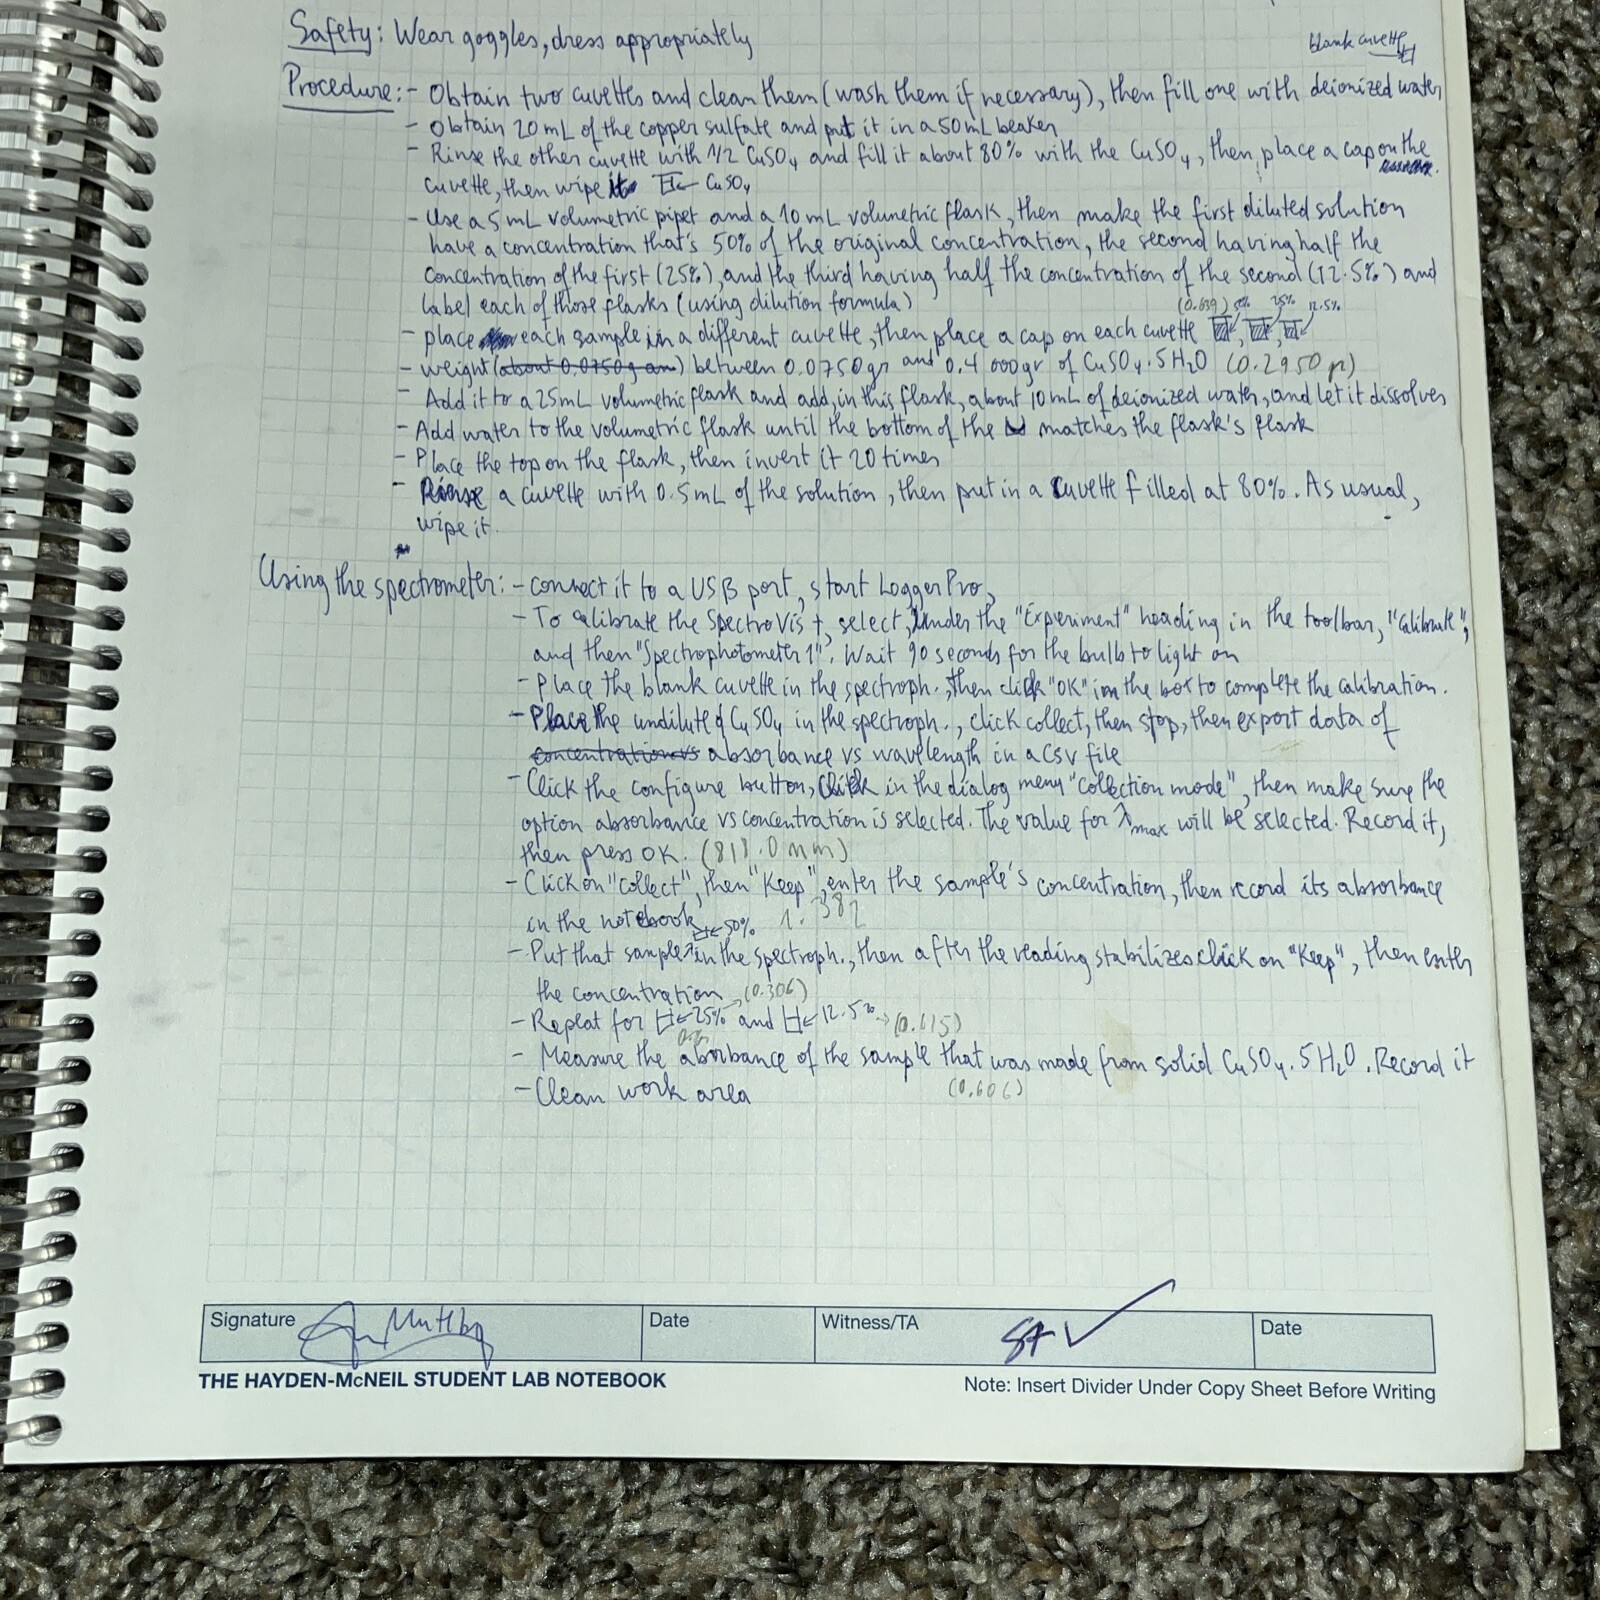 Safety: Wear goggles, dress appropriately
blank cuvette
Procedure: - Obtain two cuvettes and clean them (wash them if necessary), then fill one with deionized water
- Obtain 20 mL of the copper sulfate and put it in a 50 mL beaker
- Rinse the other cuvette with 1/2 CuSO4 and fill it about 80% with the CuSO4, then place a cap on the
cuvette, then wipe it ← CuSO4
- Use a 5 mL volumetric pipet and a 10 mL volumetric flask, then make the first diluted solution
have a concentration that's 50% of the original concentration, the second having half the
concentration of the first (25%), and the third having half the concentration of the second (12.5%) and
label each of those flasks (using dilution formula)
(0.639) 50% 25% 12.5%
- place each sample in a different cuvette, then place a cap on each cuvette
- weight (about 0.0750 gram) between 0.0750 gr and 0.4000 gr of CuSO4.5H2O (0.2950 gr)
- Add it to a 25 mL volumetric flask and add, in this flask, about 10 mL of deionized water, and let it dissolves
- Add water to the volumetric flask until the bottom of the matches the flask's flask
- Place the top on the flask, then invert it 20 times
- Rinse a cuvette with 0.5 mL of the solution, then put in a cuvette filled at 80%. As usual,
wipe it.
Using the spectrometer: - connect it to a USB port, start LoggerPro,
- To calibrate the SpectroVis +, select, under the "Experiment" heading in the toolbar, "Calibrate",
and then "Spectrophotometer 1". Wait 90 seconds for the bulb to light on
- Place the blank cuvette in the spectroph., then click "OK" in the box to complete the calibration.
- Place the undiluted CuSO4 in the spectroph., click collect, then stop, then export data of
concentration vs absorbance vs wavelength in a csv file
- Click the configure button, click in the dialog menu "collection mode", then make sure the
option absorbance vs concentration is selected. The value for λmax will be selected. Record it,
then press OK. (818.0 nm)
- Click on "collect", then "Keep", enter the sample's concentration, then record its absorbance
in the notebook 1.382
← 50%
- Put that sample in the spectroph., then after the reading stabilizes click on "Keep", then enter
the concentration (0.306)
- Repeat for ← 25% and ← 12.5% → (0.115)
- Measure the absorbance of the sample that was made from solid CuSO4.5H2O. Record it
- Clean work area (0.606)
Signature
Date
Witness/TA
Date
THE HAYDEN-McNEIL STUDENT LAB NOTEBOOK
Note: Insert Divider Under Copy Sheet Before Writing